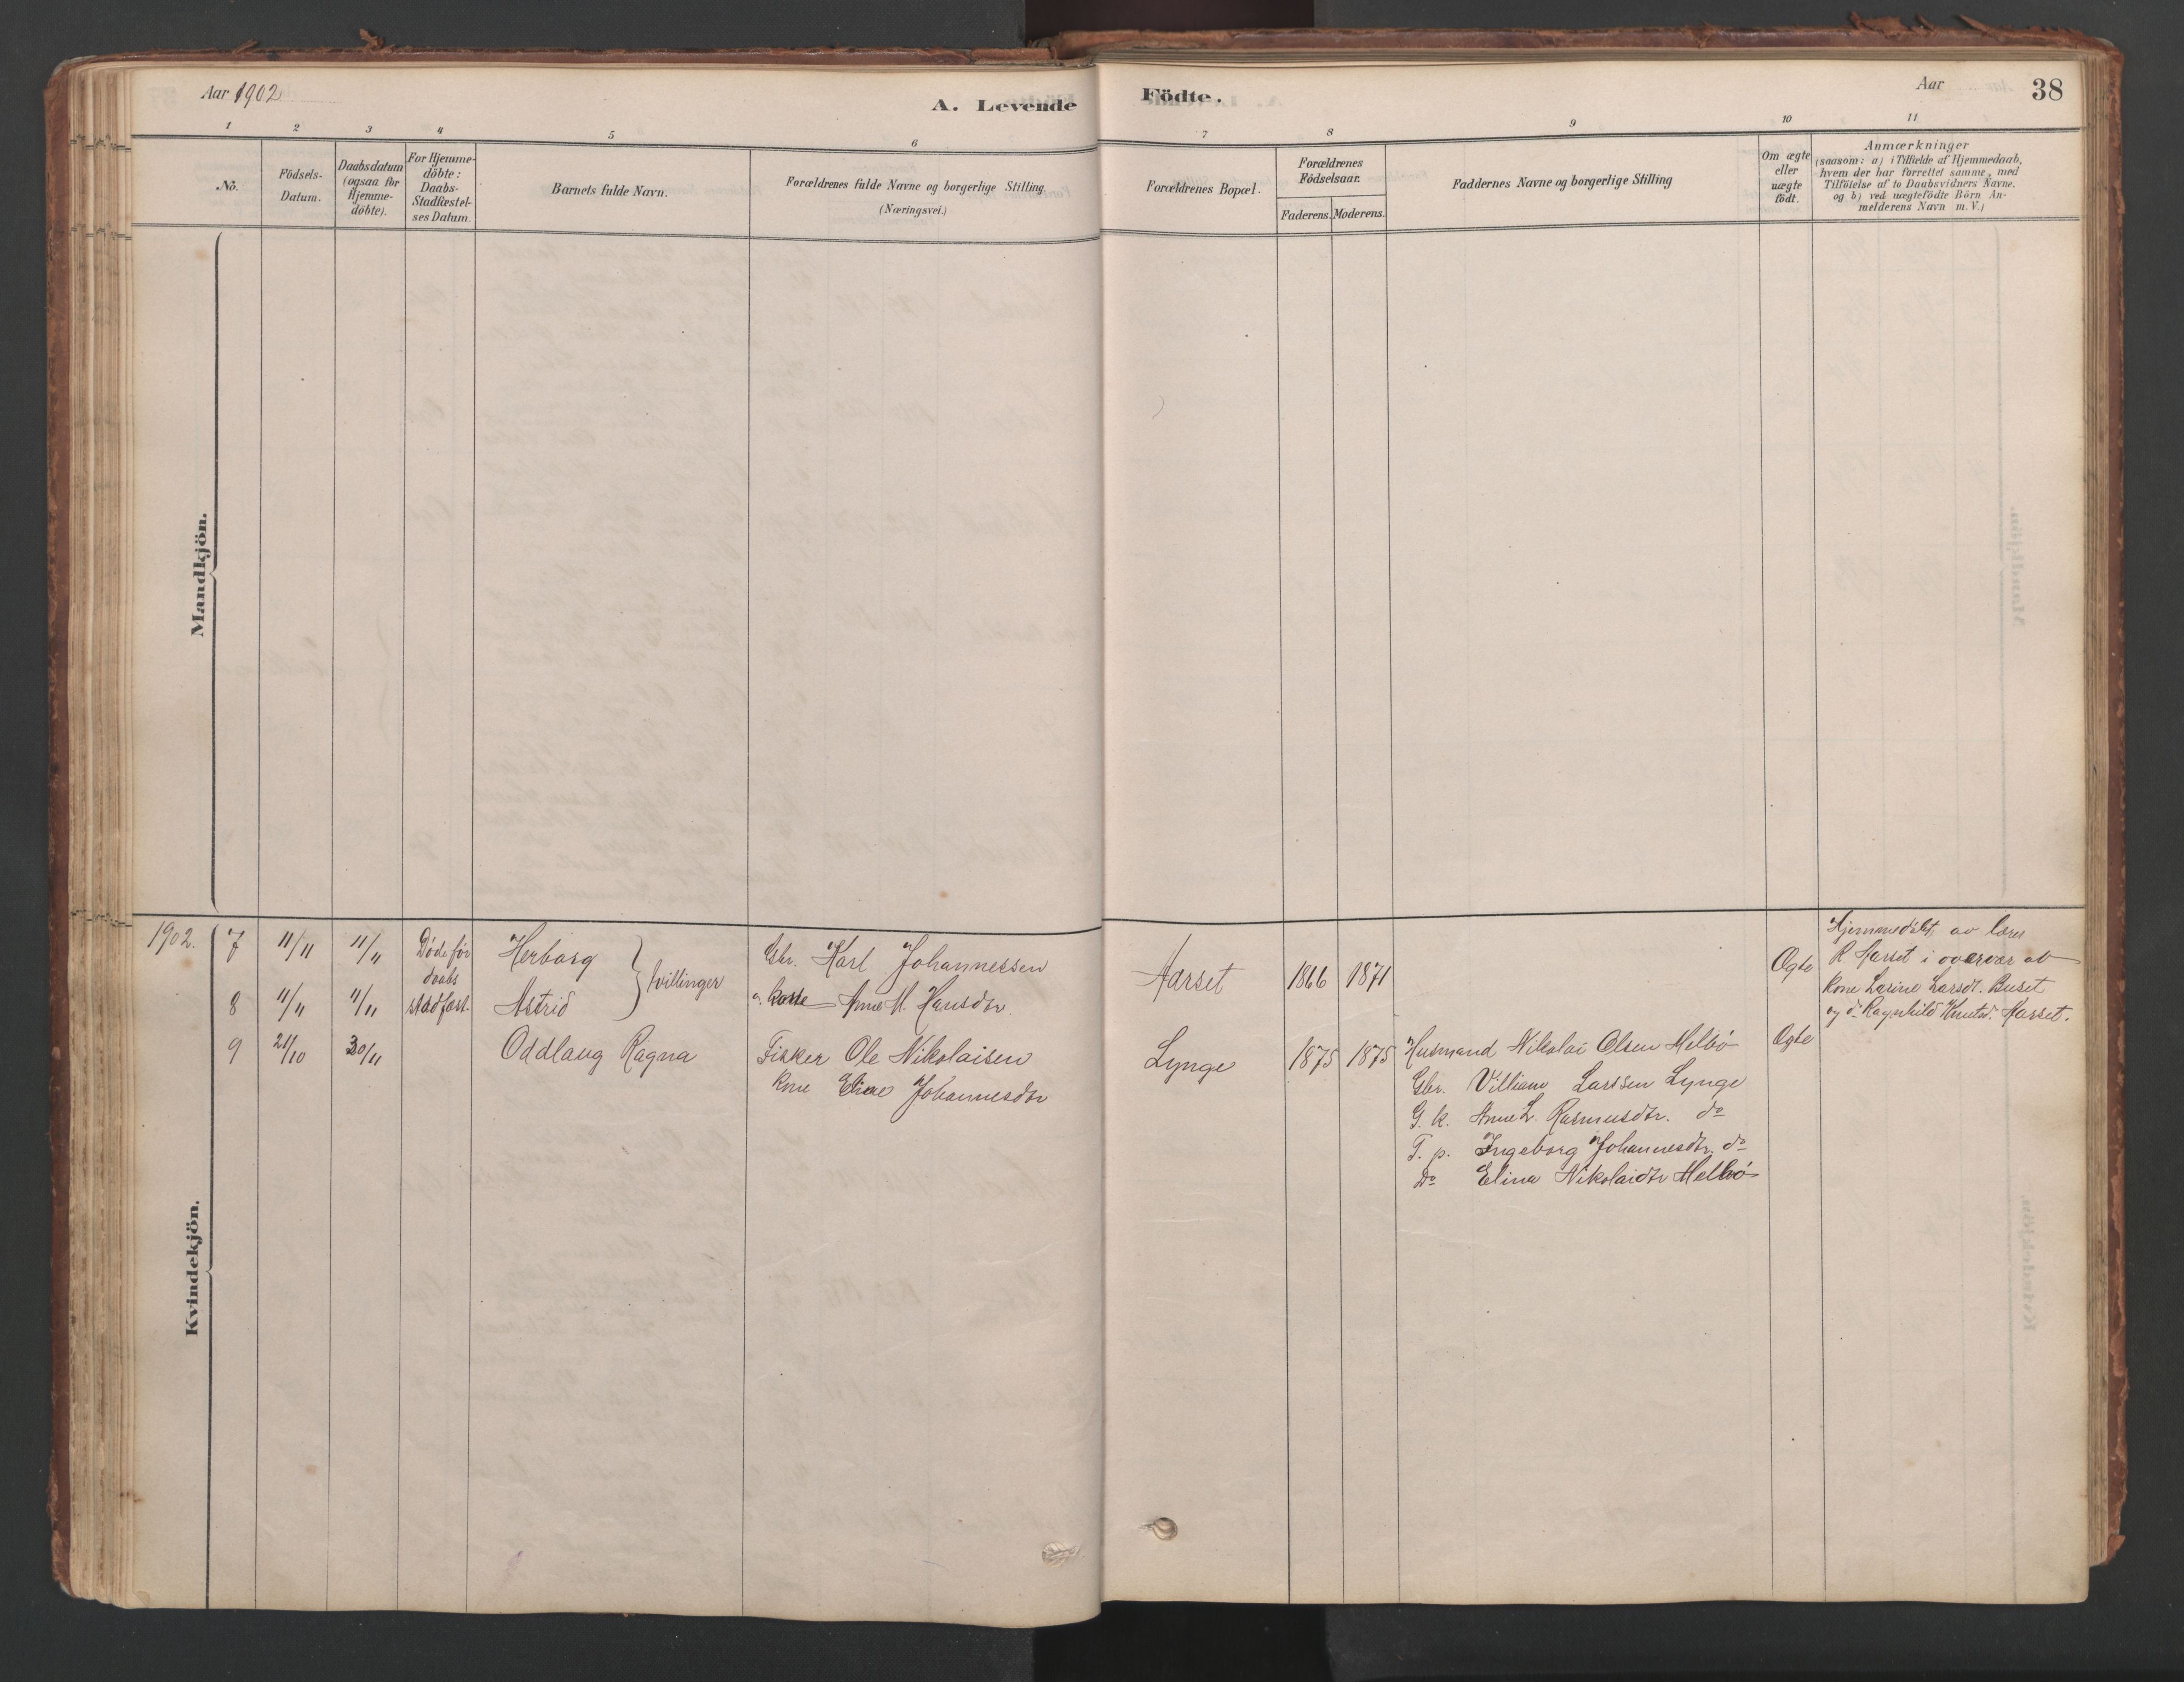 Aar 1902
A. Levende
Födte.
Aar
38
1 2 3 4 5 6 7 8 9 10 11
No.
Födsels-
Datum.
Daabsdatum
(ogsaa for
Hjemme-
döbte).
For Hjemme-
döbte:
Daabs-
Stadfæstel-
ses Datum.
Barnets fulde Navn.
Forældrenes fulde Navne og borgerlige Stilling
(Næringsvei.)
Forældrenes Bopæl.
Forældrenes
Födselsaar.
Faderens. Moderens.
Faddernes Navne og borgerlige Stilling
Om ægte
eller
uægte
födt.
Anmærkninger
(saasom: a) i Tilfælde af Hjemmedaab,
hvem der har forrettet samme, med
Tilföielse af to Daabsvidners Navne,
og b) ved uægtefödte Börn An-
melderens Navn m. V.)
Mandkjön.
Kvindekjön.
1902. 7 11/11 11/11 Døde før Herborg Gbr. Karl Johannessen
daabs } tvillinger
8 11/11 11/11 stadfæst. Astrid Anne M. Hansdtr.
Aarset 1866 1871 Ægte
Hjemmedøbt av lærer
R. Aarset i overvær av
kone Larine Larsdt. Buset
og do Ragnhild Knutsd. Aarset.
9 21/10 30/11 Oddlaug Ragna Fisker Ole Nikolaisen
kone Eline Johannesdtr
Lynge 1875 1875 Husmand Nikolai Olsen Melbö Ægte
Gbr. Villiam Larssen Lynge
G. k. Anne L. Rasmusdtr. do
T. p. Ingeborg Johannesdtr. do
Do Elina Nikolaidtr Melbö